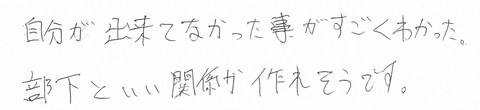 自分が出来てなかった事がすごくわかった。
部下といい関係が作れそうです。